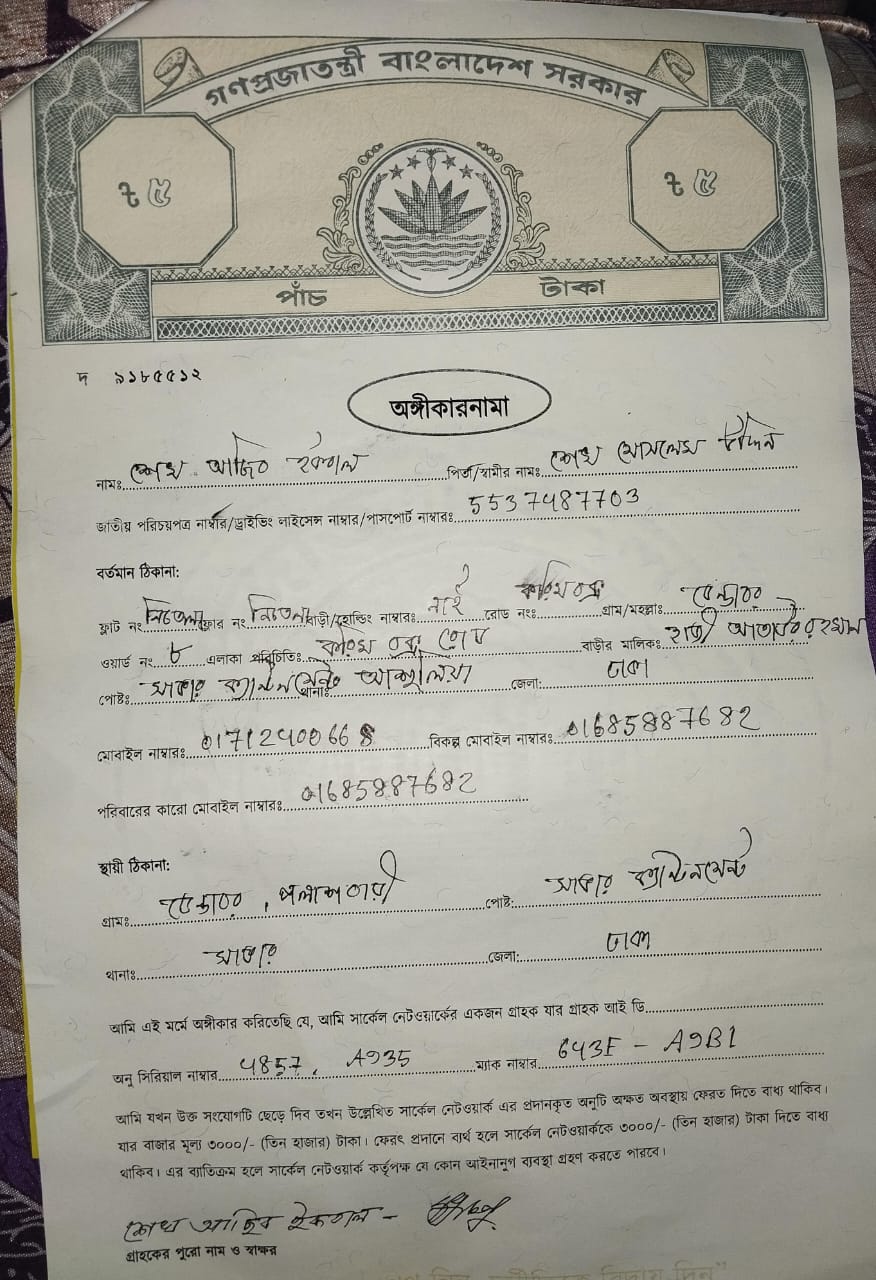 গণপ্রজাতন্ত্রী বাংলাদেশ সরকার
৳ ৫ ৳ ৫
পাঁচ টাকা
দ ৯১৮৫৫১২
অঙ্গীকারনামা
নামঃ শেখ আজিব ইকবাল পিতা/স্বামীর নামঃ শেখ মোসলেম উদ্দিন
জাতীয় পরিচয়পত্র নাম্বার/ড্রাইভিং লাইসেন্স নাম্বার/পাসপোর্ট নাম্বারঃ 5537487703
বর্তমান ঠিকানা:
ফ্লাট নং ফ্লোর নং বাড়ী/হোল্ডিং নাম্বারঃ নাই রোড নংঃ গ্রাম/মহল্লাঃ
ওয়ার্ড নং ৮ এলাকা পরিচিতিঃ বাড়ীর মালিকঃ হাজী আতাউর রহমান
পোষ্টঃ সাভার ক্যান্টনমেন্ট থানাঃ আশুলিয়া জেলা: ঢাকা
মোবাইল নাম্বারঃ বিকল্প মোবাইল নাম্বারঃ 01685887682
পরিবারের কারো মোবাইল নাম্বারঃ 01685887682
স্থায়ী ঠিকানা:
গ্রামঃ পলাশবাড়ী পোষ্ট: সাভার ক্যান্টনমেন্ট
থানাঃ সাভার জেলা: ঢাকা
আমি এই মর্মে অঙ্গীকার করিতেছি যে, আমি সার্কেল নেটওয়ার্কের একজন গ্রাহক যার গ্রাহক আই ডি
অনু সিরিয়াল নাম্বার 4857, A935 ম্যাক নাম্বার 643F - A9B1
আমি যখন উক্ত সংযোগটি ছেড়ে দিব তখন উল্লেখিত সার্কেল নেটওয়ার্ক এর প্রদানকৃত অনুটি অক্ষত অবস্থায় ফেরত দিতে বাধ্য থাকিব।
যার বাজার মূল্য ৩০০০/- (তিন হাজার) টাকা। ফেরৎ প্রদানে ব্যর্থ হলে সার্কেল নেটওয়ার্ককে ৩০০০/- (তিন হাজার) টাকা দিতে বাধ্য
থাকিব। এর ব্যতিক্রম হলে সার্কেল নেটওয়ার্ক কর্তৃপক্ষ যে কোন আইনানুগ ব্যবস্থা গ্রহণ করতে পারবে।
শেখ আজিব ইকবাল -
গ্রাহকের পুরো নাম ও স্বাক্ষর